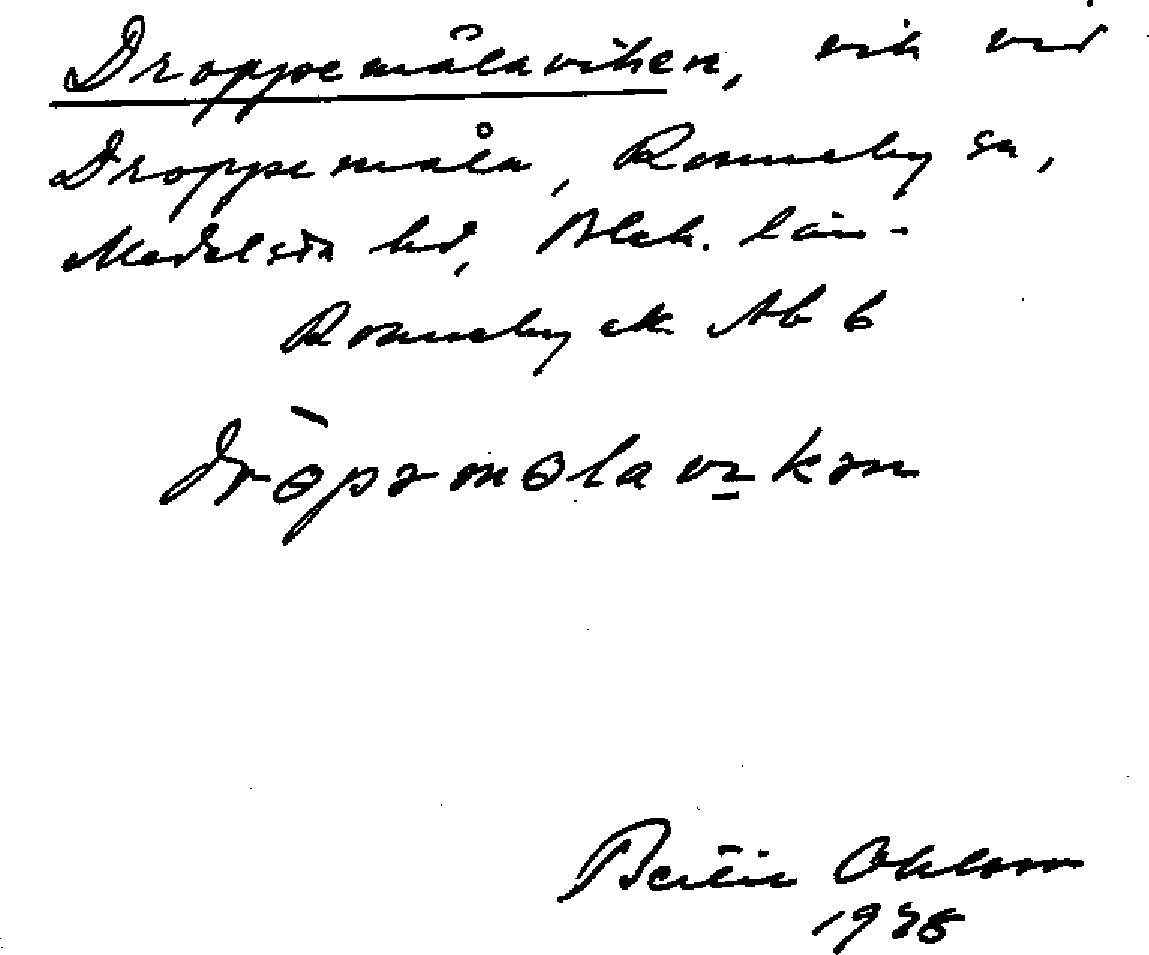 Droppemålaviken, vik vid
Droppemåla, Ronneby sn,
Medelsta hd, Blek. län.
Ronneby ek. Ab 6
dròpəmolavɪkən
Bertil Ohlsson
1978